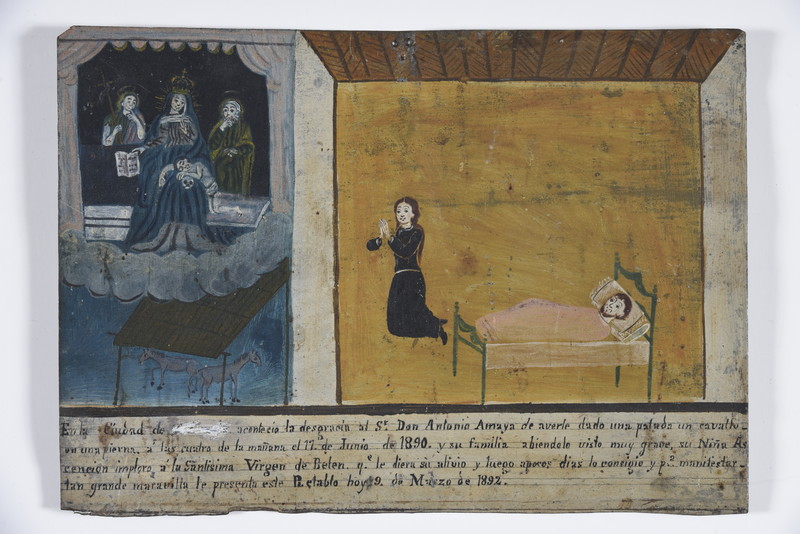 En la Ciudad de acontecio la desgracia al Sr. Don Antonio Amaya de averle dado una patada un cavallo
en una pierna, a las cuatro de la mañana el 17. de Junio de 1890. y su familia abiendole visto muy grave, su Niña As
cencion imploro, a la Santisima Virgen de Belen. qe. le diera su alivio y luego apocos dias lo consigio y pa. manifestar
tan grande maravilla le presenta este Retablo hoy 9. de Marzo de 1892.